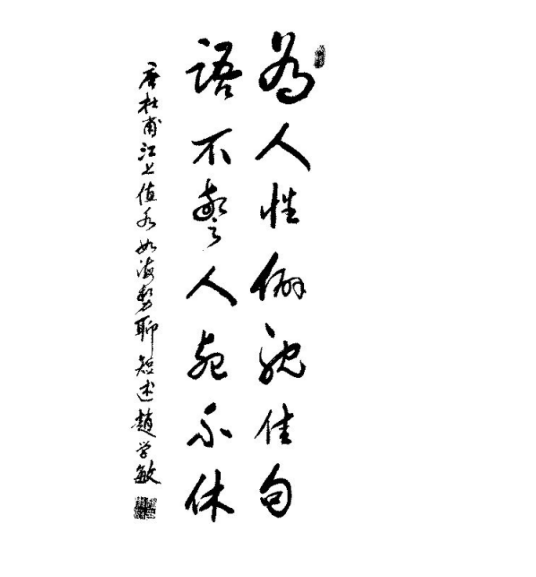 為人性僻耽佳句
語不驚人死不休
唐杜甫江上值水如海勢聊短述趙学敏